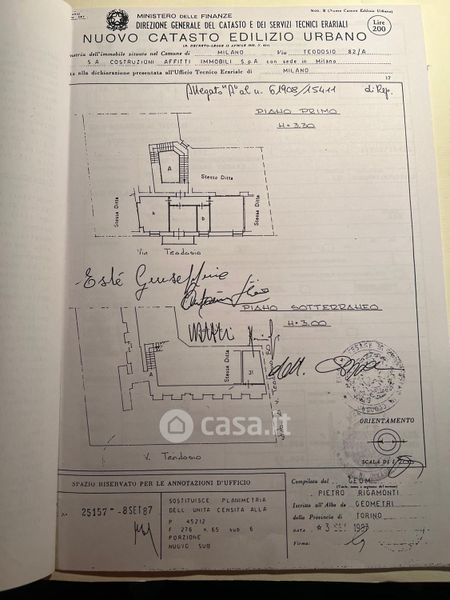 MINISTERO DELLE FINANZE
DIREZIONE GENERALE DEL CATASTO E DEI SERVIZI TECNICI ERARIALI
NUOVO CATASTO EDILIZIO URBANO
Lire
200
dell'immobile situato nel Comune di MILANO Via TEODOSIO 82/A
S.A COSTRUZIONI AFFITTI IMMOBILI S.p.A con sede in Milano
alla dichiarazione presentata all'Ufficio Tecnico Erariale di MILANO
Allegato "A" al n. 61908/15411 di Rep.
PIANO PRIMO
H=3.30
A
Stessa Ditta
Stessa Ditta
Stessa Ditta
k
b
Via Teodosio
Esté Giuseppino
PIANO SOTTERRANEO
H=3.00
Stessa Ditta
A
31
casa.it
V. Teodosio
ORIENTAMENTO
SCALA DI 1:
SPAZIO RISERVATO PER LE ANNOTAZIONI D'UFFICIO
25157 -8SET87
SOSTITUISCE PLANIMETRIA
DELL'UNITA CENSITA ALLA
P 45212
F 276 n 65 sub 6
PORZIONE
NUOVO SUB
Compilata dal GEOM.
PIETRO RIGAMONTI
Iscritto all'Albo de GEOMETRI
della Provincia di TORINO
DATA 3 1987
Firma: